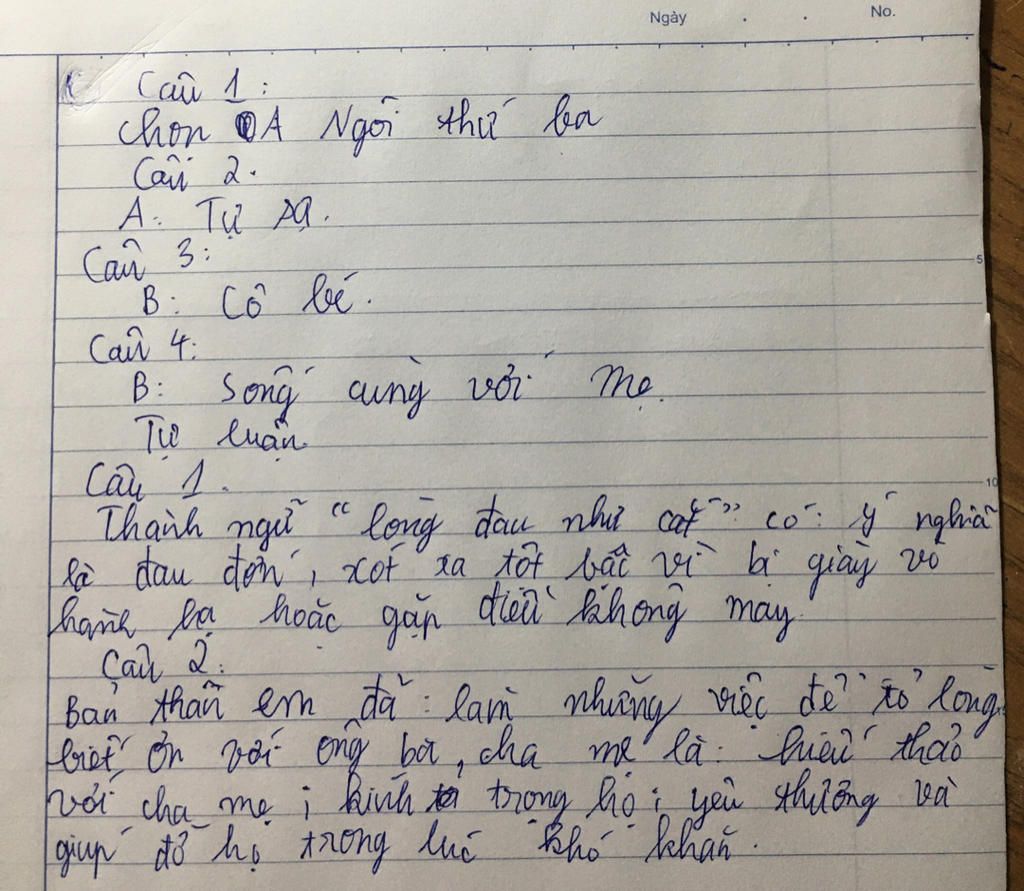 Ngày . . No.
Câu 1:
chọn A Ngôi thứ ba
Câu 2.
A: Tự sự.
5
Câu 3:
B: Cô bé.
Câu 4:
B: Sống cùng với mẹ.
Tự luận.
10
Câu 1.
Thành ngữ "lòng đau như cắt" có: ý nghĩa
là đau đớn, xót xa tột bấc vì bị giày vò
hành hạ hoặc gặp điều không may.
Câu 2:
Bản thân em đã: làm những việc để tỏ lòng
biết ơn với ông bà, cha mẹ là: hiếu thảo
với cha mẹ; kính trọng họ; yêu thương và
giúp đỡ họ trong lúc khó khăn.